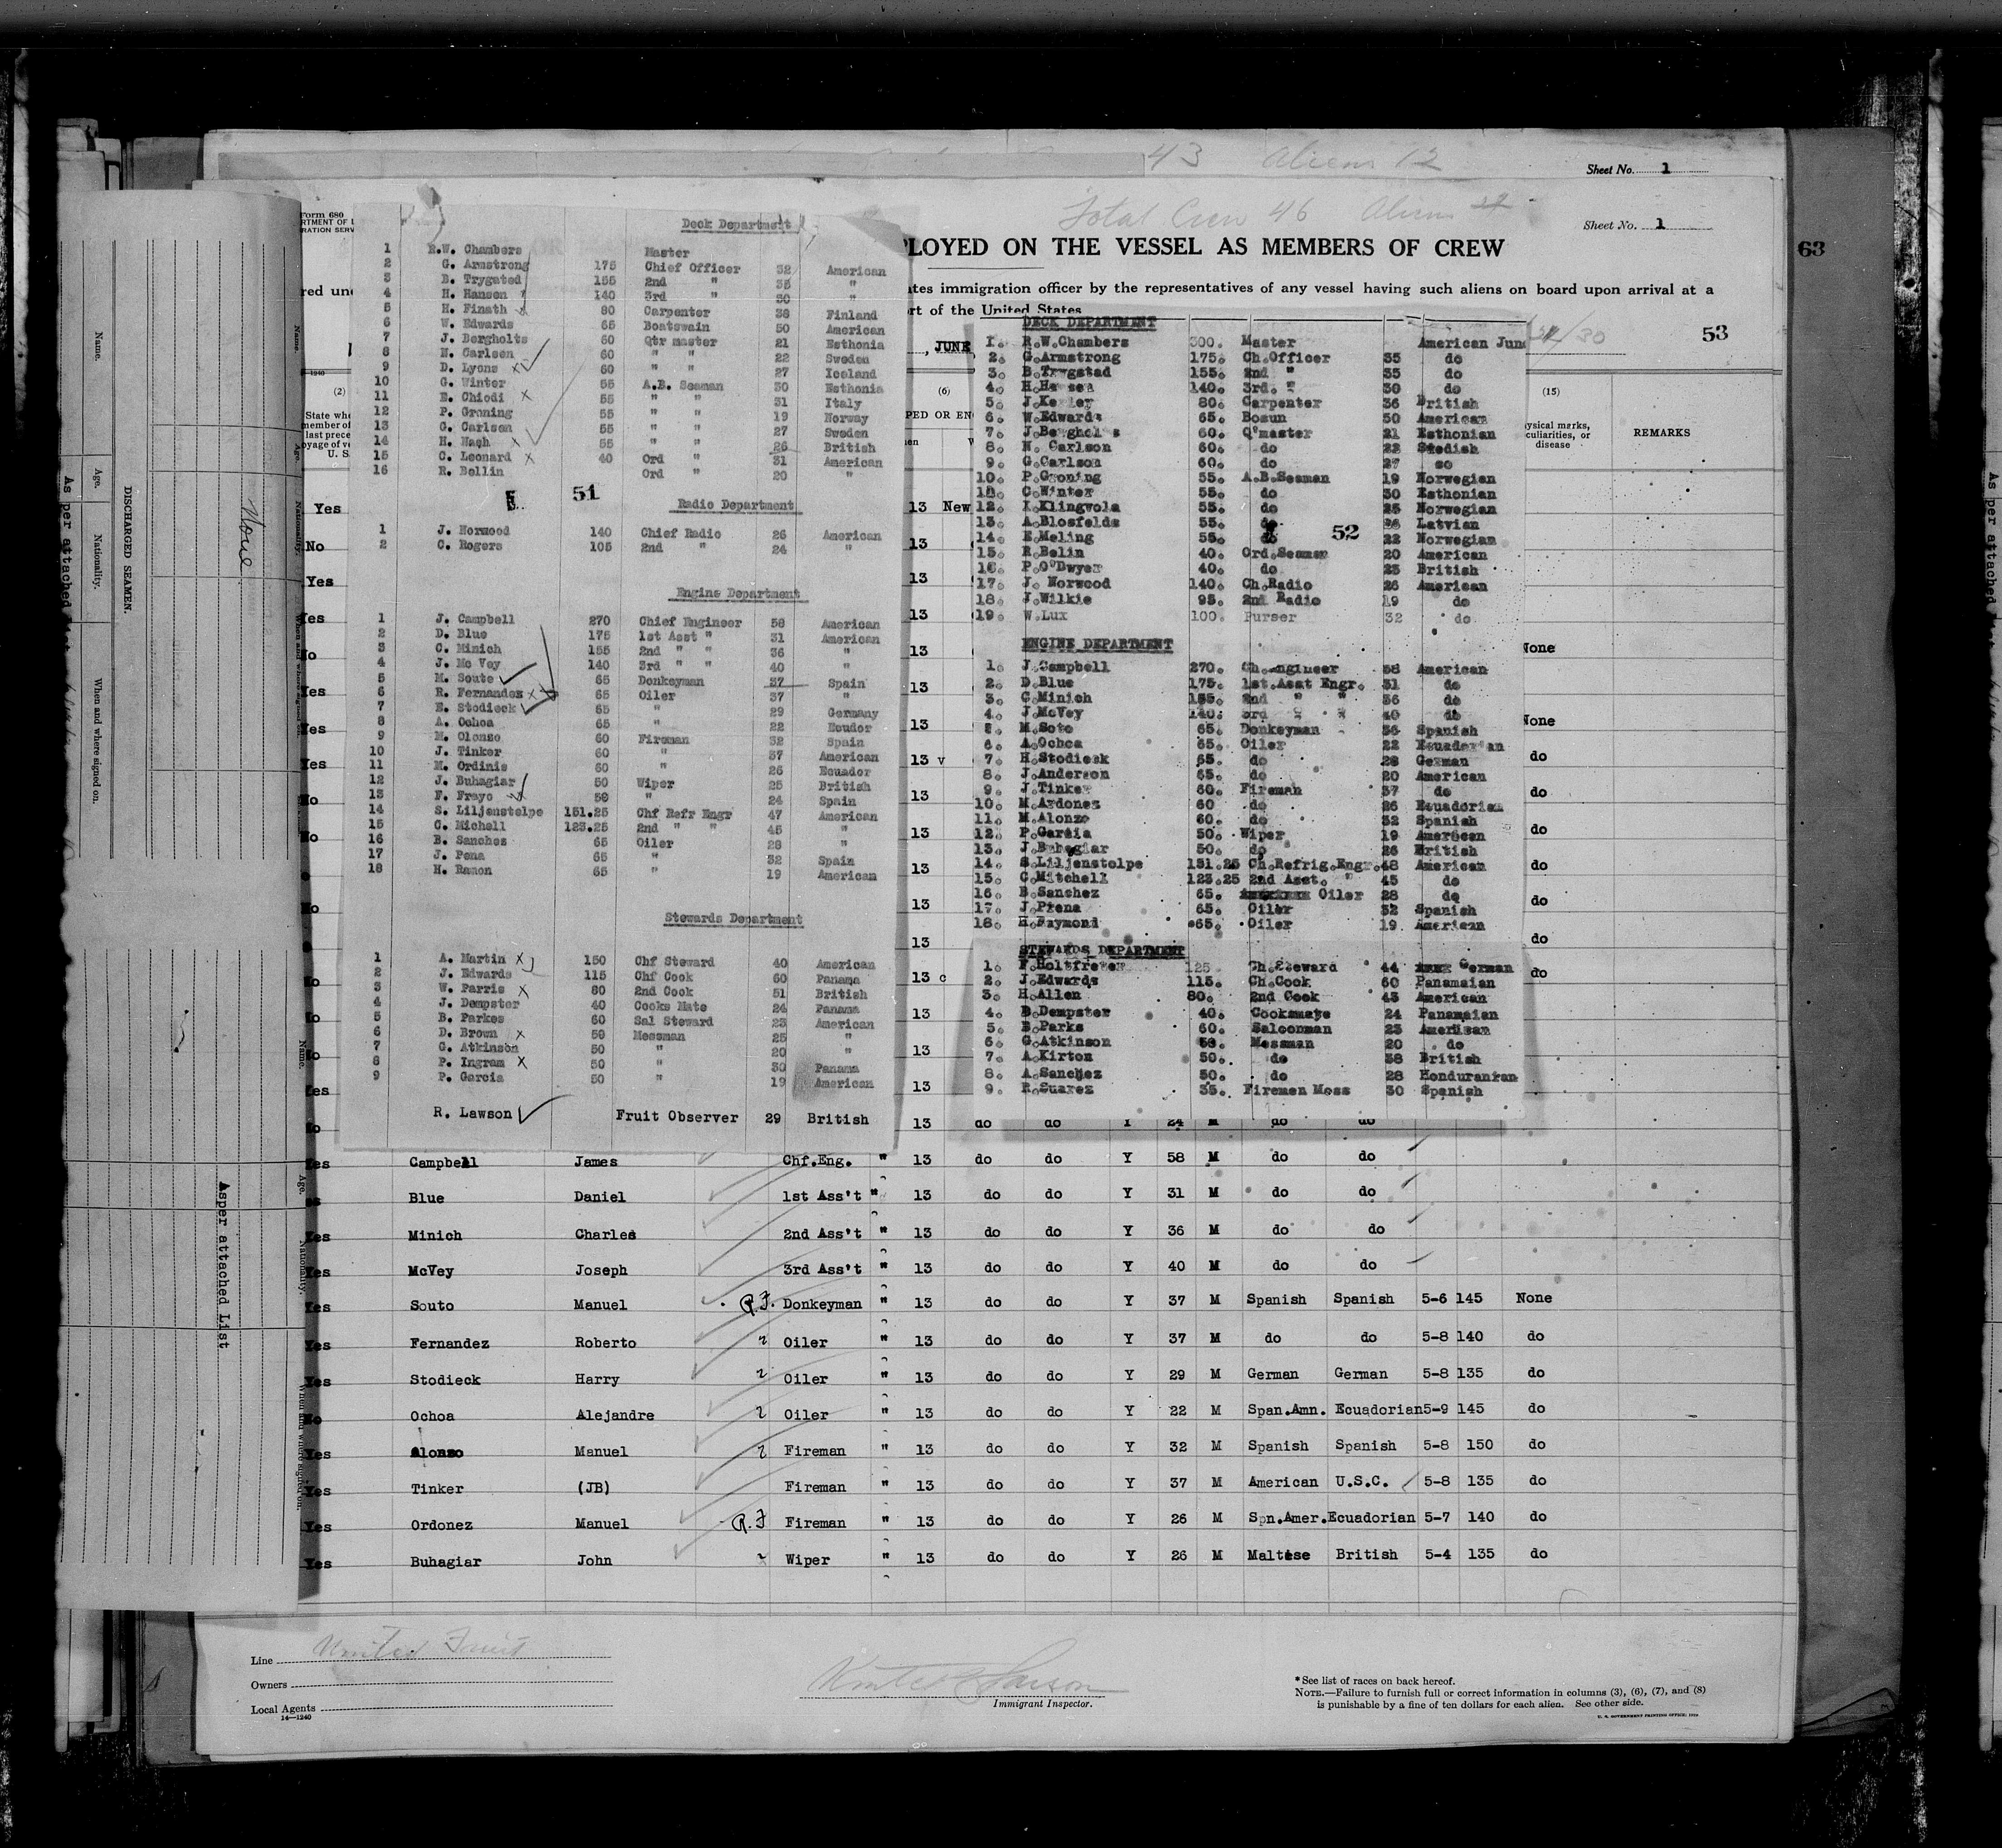 43 Aliens 12
Sheet No. 1
Total Crew 46 Aliens
Sheet No. 1
Form 680
PLOYED ON THE VESSEL AS MEMBERS OF CREW
63
red un
ates immigration officer by the representatives of any vessel having such aliens on board upon arrival at a
rt of the United States
, JUNE
53
(2) (6) (15)
REMARKS
Deck Department
1 R.W. Chambers Master
2 G. Armstrong 175 Chief Officer 32 American
3 B. Trygsted 155 2nd " 35 "
4 H. Hansen 140 3rd " 30 "
5 H. Finath 80 Carpenter 38 Finland
6 W. Edwards 65 Boatswain 50 American
7 J. Bergholts 60 Qtr master 21 Esthonia
8 N. Carlsen 60 " " 22 Sweden
9 D. Lyons x 60 " " 27 Iceland
10 G. Winter 55 A.B. Seaman 30 Esthonia
11 E. Chiodi x 55 " " 31 Italy
12 P. Groning 55 " " 19 Norway
13 G. Carlsen 55 " " 27 Sweden
14 H. Nash x 55 " " 26 British
15 C. Leonard x 40 Ord " 31 American
16 R. Bellin Ord " 20 "
E. 51
Radio Department
1 J. Norwood 140 Chief Radio 26 American
2 C. Rogers 105 2nd " 24 "
Engine Department
1 J. Campbell 270 Chief Engineer 58 American
2 D. Blue 175 1st Asst " 31 American
3 C. Minich 155 2nd " " 36 "
4 J. Mc Vey 140 3rd " " 40 "
5 M. Souto 65 Donkeyman 37 Spain
6 R. Fernandez x 65 Oiler 37 "
7 E. Stodieck 65 " 29 Germany
8 A. Ochoa 65 " 22 Ecudor
9 M. Olonzo 60 Fireman 32 Spain
10 J. Tinker 60 " 37 American
11 M. Ordinis 60 " 26 Ecuador
12 J. Buhagiar 50 Wiper 25 British
13 F. Frayo 50 " 24 Spain
14 S. Liljenstelpe 151.25 Chf Refr Engr 47 American
15 C. Michell 123.25 2nd " " 45 "
16 B. Sanches 65 Oiler 28 "
17 J. Pena 65 " 32 Spain
18 H. Ramon 65 " 19 American
Stewards Department
1 A. Martin x 150 Chf Steward 40 American
2 J. Edwards 115 Chf Cook 60 Panama
3 W. Parris x 80 2nd Cook 51 British
4 J. Dempster 40 Cooks Mate 24 Panama
5 B. Parkes 60 Sal Steward 23 American
6 D. Brown x 50 Messman 25 "
7 G. Atkinson 50 " 20 "
8 P. Ingram x 50 " 30 Panama
9 P. Garcia 50 " 19 American
R. Lawson Fruit Observer 29 British
DECK DEPARTMENT
1. R.W.Chambers 300. Master American June
2. G.Armstrong 175. Ch.Officer 35 do
3. B.Trygstad 155. 2nd " 35 do
4. H.Hansen 140. 3rd. " 30 do
5. J.Kelley 80. Carpenter 36 British
6. W.Edwards 65. Bosun 50 American
7. J.Bergholts 60. Q'master 21 Esthonian
8. N. Carlson 60. do 22 Swedish
9. G.Carlson 60. do 27 so
10. P.Groning 55. A.B.Seaman 19 Norwegian
11. C.Winter 55. do 30 Esthonian
12. I.Klingvola 55. do 25 Norwegian
13. A.Blosfelds 55. do 26 Latvian
14. E.Meling 55. do 22 Norwegian
52
15. R.Belin 40. Ord.Seaman 20 American
16. P.O'Dwyer 40. do 23 British
17. J. Norwood 140. Ch.Radio 26 American
18. J.Wilkie 95. 2nd Radio 19 do
19. W.Lux 100. Purser 32 do
ENGINE DEPARTMENT
1. J.Campbell 270. Ch.engineer 58 American
2. D.Blue 175. 1st.Asst Engr. 31 do
3. C.Minich 155. 2nd " " 36 do
4. J.McVey 140. 3rd " " 40 do
5. M.Soto 65. Donkeyman 36 Spanish
6. A.Ochoa 65. Oiler 22 Ecuadorian
7. H.Stodieck 65. do 28 German
8. J.Anderson 65. do 20 American
9. J.Tinker 60. Fireman 37 do
10. M.Ardones 60 do 26 Ecuadorian
11. M.Alonzo 60. do 32 Spanish
12. P.Garcia 50. Wiper 19 American
13. J.Buhagiar 50. do 26 British
14. S.Liljenstolpe 151.25 Ch.Refrig.Engr. 48 American
15. C.Mitchell 123.25 2nd Asst. " 45 do
16. B.Sanchez 65. Oiler 28 do
17. J.Prena 65. Oiler 32 Spanish
18. H.Raymond 65. Oiler 19 American
STEWARDS DEPARTMENT
1. F.Holtfreter 125. Ch.Steward 44 German
2. J.Edwards 115. Ch.Cook 60 Panamaian
3. H.Allen 80. 2nd Cook 43 American
4. D.Dempster 40. Cooksmate 24 Panamaian
5. B.Parks 60. Saloonman 23 American
6. G.Atkinson 50. Messman 20 do
7. A.Kirton 50. do 38 British
8. A.Sanchez 50. do 28 Honduranian
9. R.Suarez 35. Firemen Mess 30 Spanish
13 do do Y 24 M do do
Yes Campbell James Chf.Eng. " 13 do do Y 58 M do do
Blue Daniel 1st Ass't " 13 do do Y 31 M do do
Yes Minich Charles 2nd Ass't " 13 do do Y 36 M do do
Yes McVey Joseph 3rd Ass't " 13 do do Y 40 M do do
Yes Souto Manuel R.F. Donkeyman " 13 do do Y 37 M Spanish Spanish 5-6 145 None
Yes Fernandez Roberto Oiler " 13 do do Y 37 M do do 5-8 140 do
Yes Stodieck Harry Oiler " 13 do do Y 29 M German German 5-8 135 do
No Ochoa Alejandre Oiler " 13 do do Y 22 M Span.Amn. Ecuadorian 5-9 145 do
Yes Alonzo Manuel Fireman " 13 do do Y 32 M Spanish Spanish 5-8 150 do
Yes Tinker (JB) Fireman " 13 do do Y 37 M American U.S.C. 5-8 135 do
Yes Ordonez Manuel R.F Fireman " 13 do do Y 26 M Spn.Amer. Ecuadorian 5-7 140 do
Yes Buhagiar John Wiper " 13 do do Y 26 M Maltese British 5-4 135 do
Line United Fruit
Owners
Local Agents
14—1240
Immigrant Inspector.
* See list of races on back hereof.
NOTE.—Failure to furnish full or correct information in columns (3), (6), (7), and (8)
is punishable by a fine of ten dollars for each alien. See other side.
Name.
Age.
Nationality.
When and where signed on.
As per attached
DISCHARGED SEAMEN.
None
Asper attached List